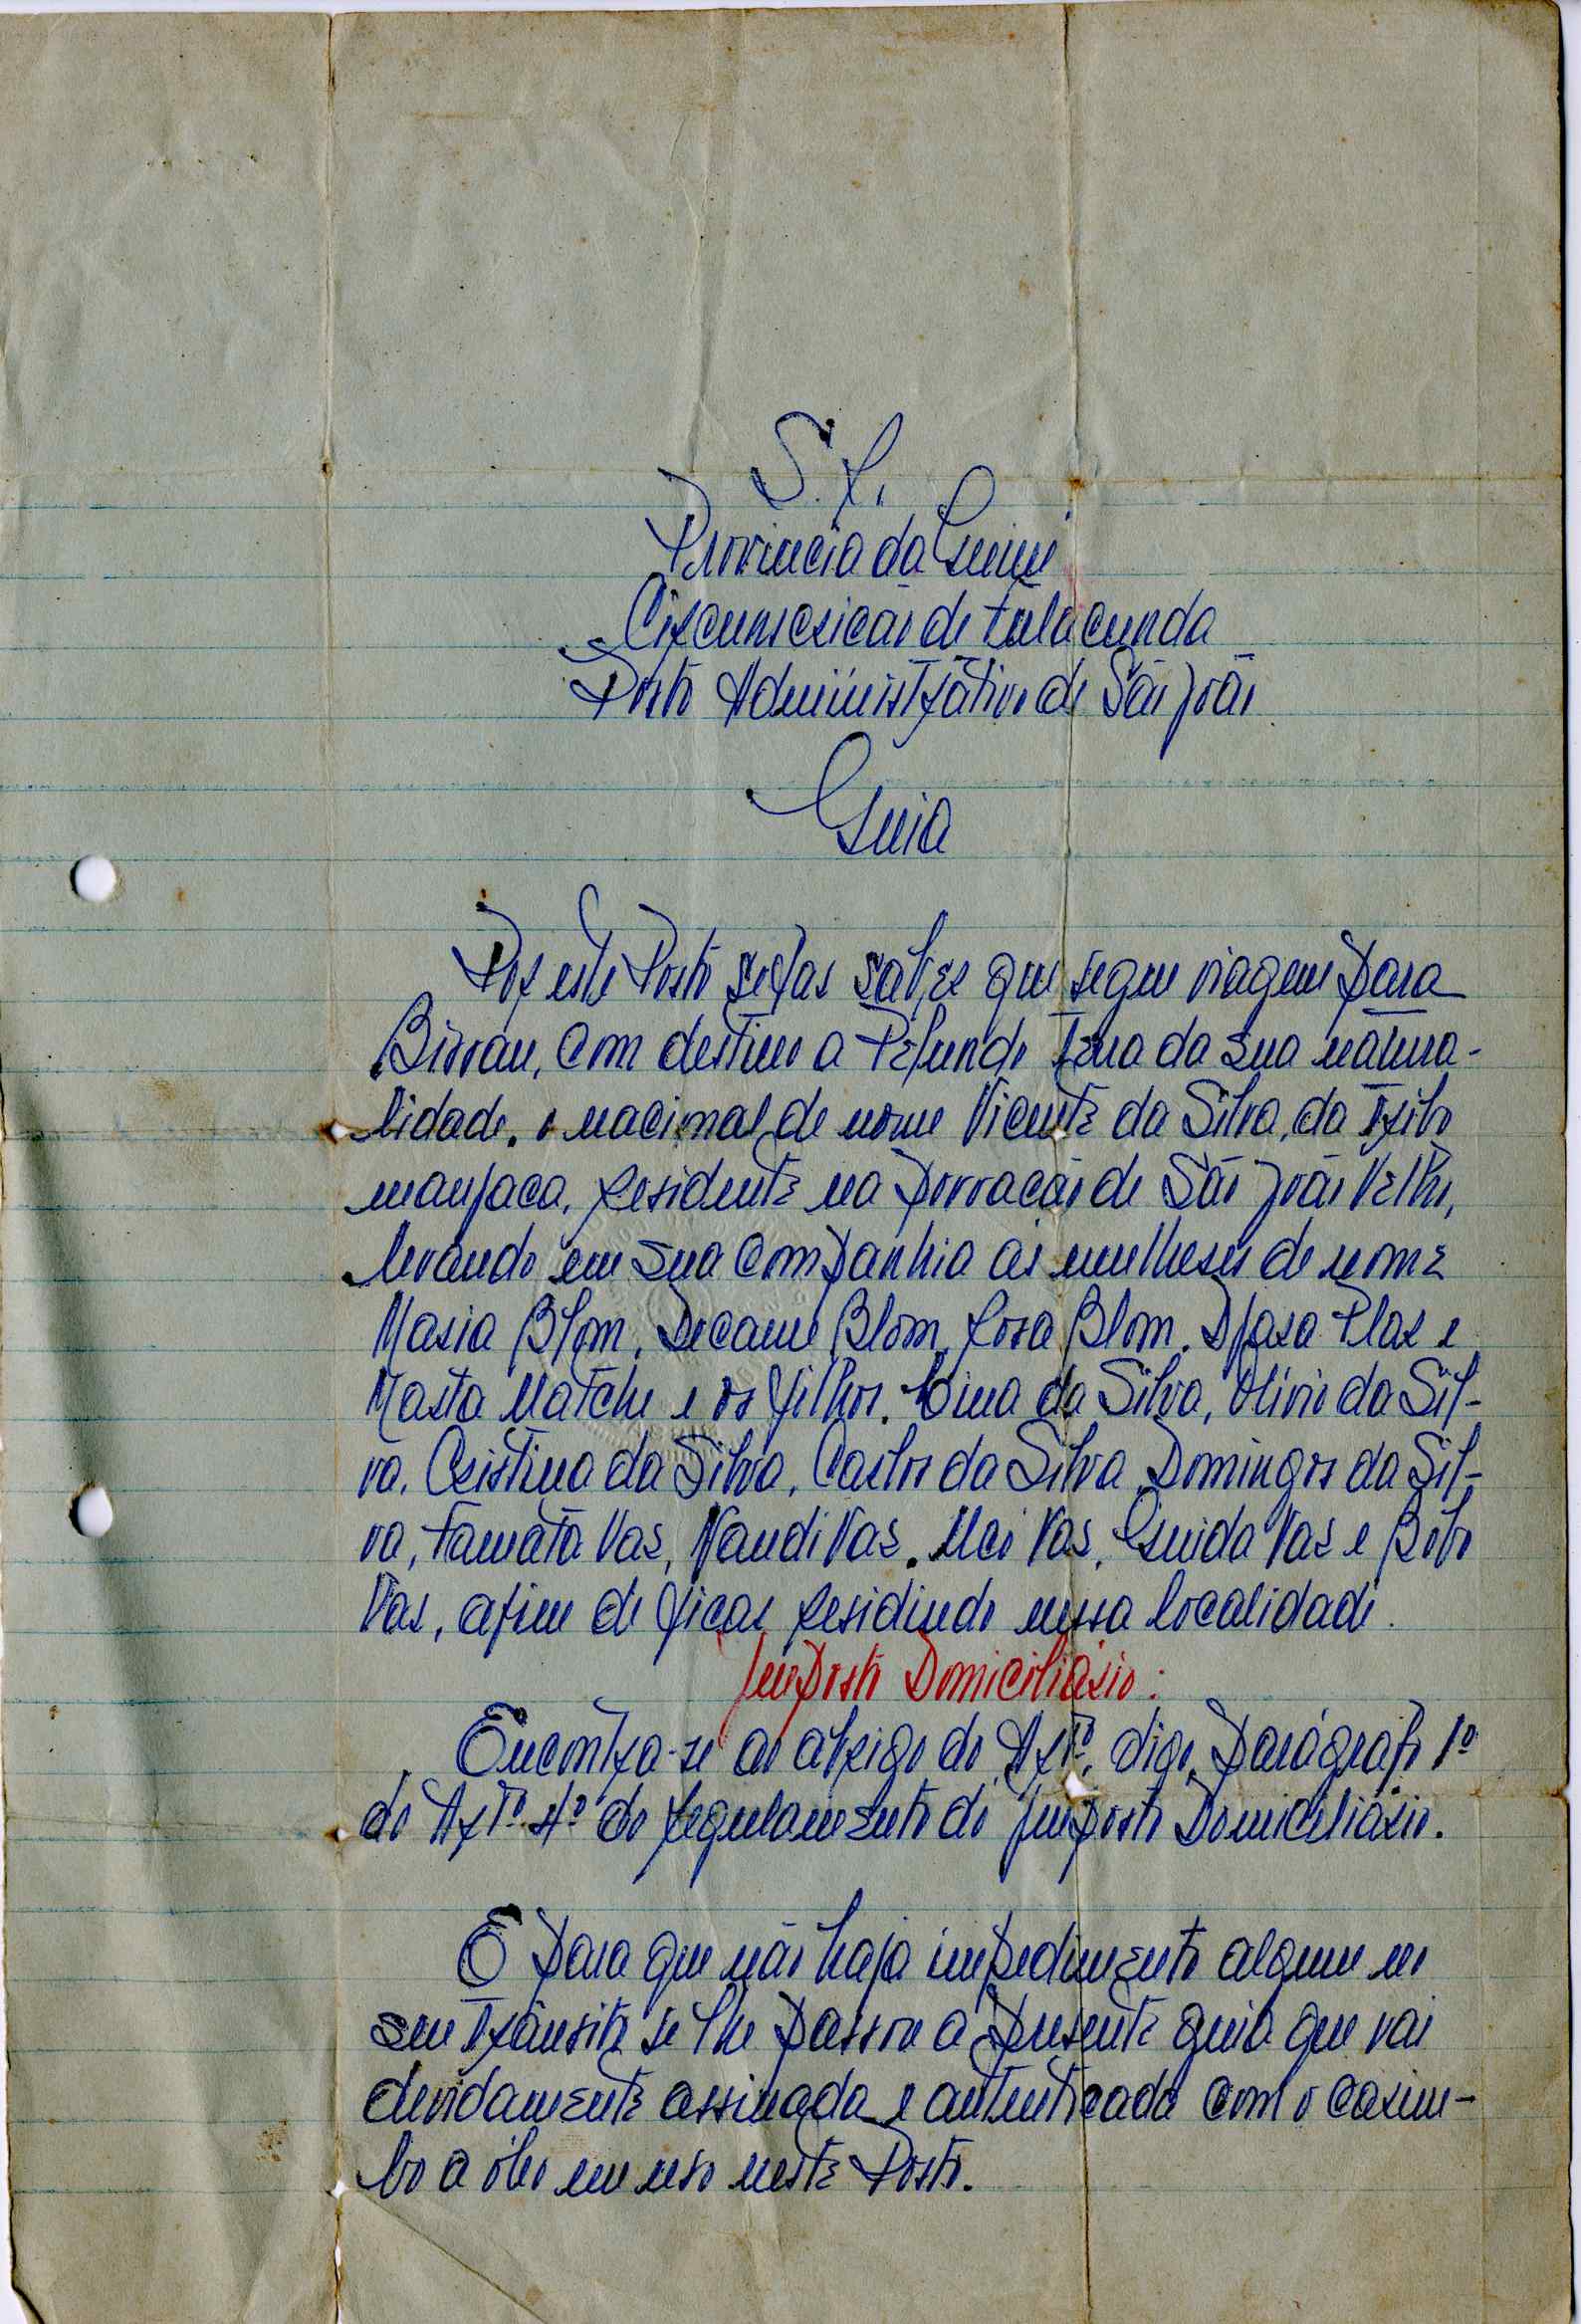 S. R.
Província da Guiné
Circunscrição de Fulacunda
Posto Administrativo de São João
Guia
Por este Posto se faz saber que segue viagem para
Bissau, com destino a Pefundo terra da sua natura-
lidade, o nacional de nome Vicente da Silva, da tribo
manjaca, residente na povoação de São João Velho,
levando em sua companhia as mulheres de nome
Maria Blom, Decame Blom, Rosa Blom, Djasa e
Marta Matche e os filhos, da Silva, Olívio da Sil-
va, Cristina da Silva, Carlos da Silva, Domingos da Sil-
va, Famatá Vaz, Nandi Vaz, Vaz, Guida Vaz e Bobo
Vaz, afim de ficar residindo nessa localidade.
Imposto Domiciliário:
Encontra-se ao abrigo do Artº, digo, parágrafo 1º
do Artº 4º do regulamento do Imposto Domiciliário.
E para que não haja impedimento algum no
seu trânsito se lhe passou a presente guia que vai
devidamente assinada e autenticada com o carim-
bo a óleo em uso neste Posto.